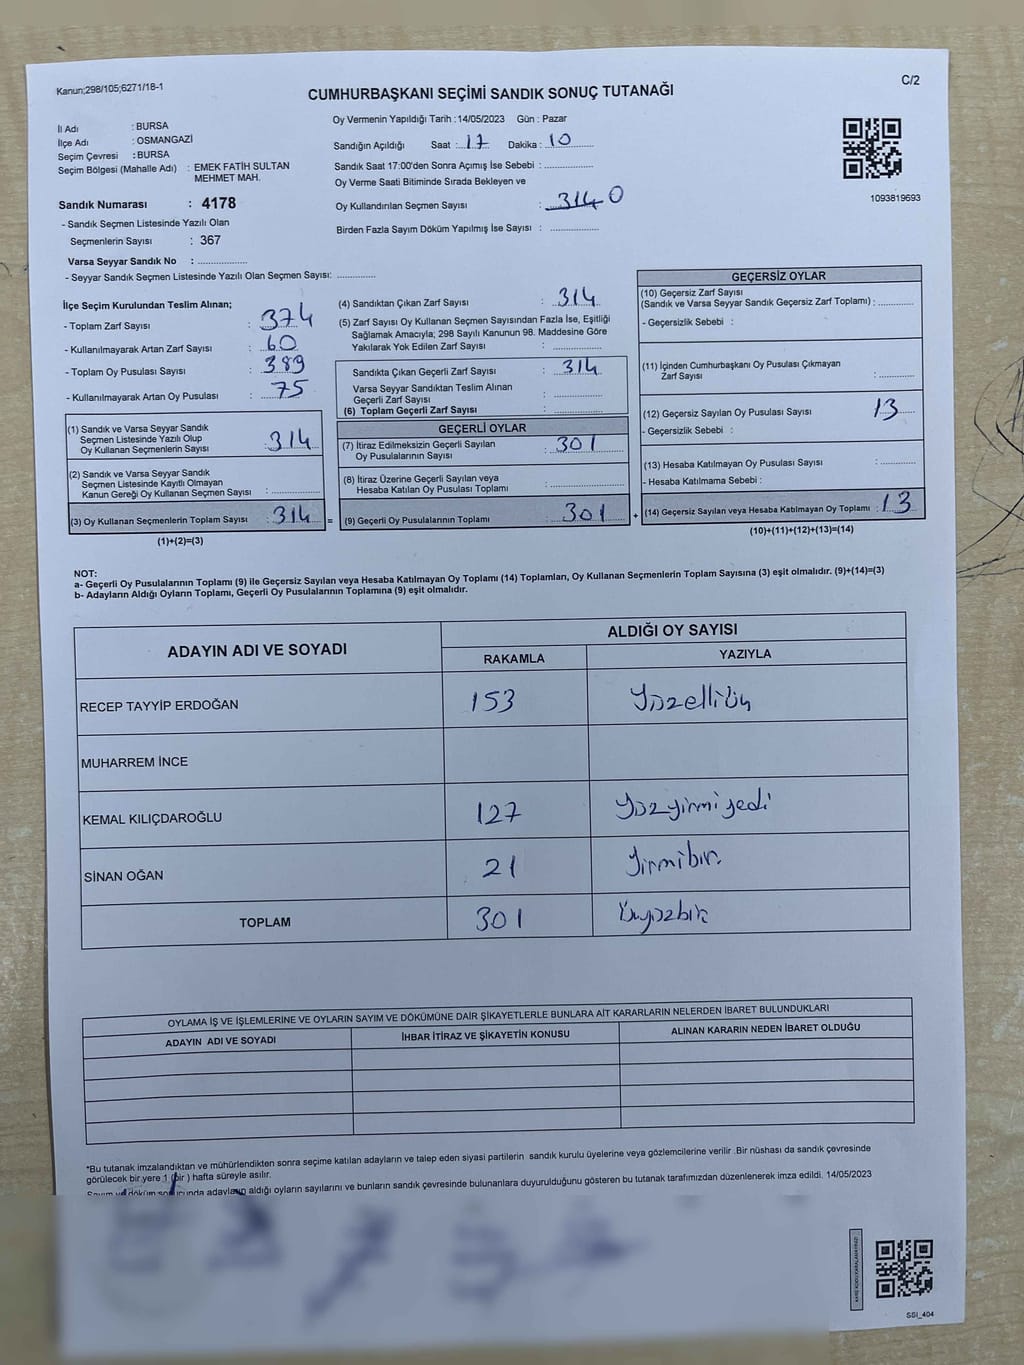 Kanun;298/105;6271/18-1
C/2
CUMHURBAŞKANI SEÇİMİ SANDIK SONUÇ TUTANAĞI
İl Adı : BURSA
İlçe Adı : OSMANGAZİ
Seçim Çevresi : BURSA
Seçim Bölgesi (Mahalle Adı) : EMEK FATİH SULTAN
MEHMET MAH.
Sandık Numarası : 4178
- Sandık Seçmen Listesinde Yazılı Olan
Seçmenlerin Sayısı : 367
Varsa Seyyar Sandık No :
- Seyyar Sandık Seçmen Listesinde Yazılı Olan Seçmen Sayısı:
Oy Vermenin Yapıldığı Tarih :14/05/2023 Gün : Pazar
Sandığın Açıldığı Saat : 17 Dakika : 10
Sandık Saat 17:00'den Sonra Açımış İse Sebebi :
Oy Verme Saati Bitiminde Sırada Bekleyen ve
Oy Kullandırılan Seçmen Sayısı : 314 0
Birden Fazla Sayım Döküm Yapılmış İse Sayısı :
1093819693
İlçe Seçim Kurulundan Teslim Alınan;
- Toplam Zarf Sayısı : 374
- Kullanılmayarak Artan Zarf Sayısı : 60
- Toplam Oy Pusulası Sayısı : 389
- Kullanılmayarak Artan Oy Pusulası : 75
(1) Sandık ve Varsa Seyyar Sandık
Seçmen Listesinde Yazılı Olup
Oy Kullanan Seçmenlerin Sayısı : 314
(2) Sandık ve Varsa Seyyar Sandık
Seçmen Listesinde Kayıtlı Olmayan
Kanun Gereği Oy Kullanan Seçmen Sayısı :
(3) Oy Kullanan Seçmenlerin Toplam Sayısı : 314 =
(1)+(2)=(3)
(4) Sandıktan Çıkan Zarf Sayısı : 314
(5) Zarf Sayısı Oy Kullanan Seçmen Sayısından Fazla İse, Eşitliği
Sağlamak Amacıyla; 298 Sayılı Kanunun 98. Maddesine Göre
Yakılarak Yok Edilen Zarf Sayısı :
Sandıkta Çıkan Geçerli Zarf Sayısı : 314
Varsa Seyyar Sandıktan Teslim Alınan
Geçerli Zarf Sayısı :
(6) Toplam Geçerli Zarf Sayısı :
GEÇERLİ OYLAR
(7) İtiraz Edilmeksizin Geçerli Sayılan
Oy Pusulalarının Sayısı : 301
(8) İtiraz Üzerine Geçerli Sayılan veya
Hesaba Katılan Oy Pusulası Toplamı :
(9) Geçerli Oy Pusulalarının Toplamı : 301 +
GEÇERSİZ OYLAR
(10) Geçersiz Zarf Sayısı
(Sandık ve Varsa Seyyar Sandık Geçersiz Zarf Toplamı) :
- Geçersizlik Sebebi :
(11) İçinden Cumhurbaşkanı Oy Pusulası Çıkmayan
Zarf Sayısı :
(12) Geçersiz Sayılan Oy Pusulası Sayısı 13
- Geçersizlik Sebebi :
(13) Hesaba Katılmayan Oy Pusulası Sayısı :
- Hesaba Katılmama Sebebi :
(14) Geçersiz Sayılan veya Hesaba Katılmayan Oy Toplamı : 13
(10)+(11)+(12)+(13)=(14)
NOT:
a- Geçerli Oy Pusulalarının Toplamı (9) ile Geçersiz Sayılan veya Hesaba Katılmayan Oy Toplamı (14) Toplamları, Oy Kullanan Seçmenlerin Toplam Sayısına (3) eşit olmalıdır. (9)+(14)=(3)
b- Adayların Aldığı Oyların Toplamı, Geçerli Oy Pusulalarının Toplamına (9) eşit olmalıdır.
ADAYIN ADI VE SOYADI ALDIĞI OY SAYISI
RAKAMLA YAZIYLA
RECEP TAYYİP ERDOĞAN 153 Yüzelliüç
MUHARREM İNCE
KEMAL KILIÇDAROĞLU 127 Yüzyirmiyedi
SİNAN OĞAN 21 Yirmibir
TOPLAM 301 Üçyüzbir
OYLAMA İŞ VE İŞLEMLERİNE VE OYLARIN SAYIM VE DÖKÜMÜNE DAİR ŞİKAYETLERLE BUNLARA AİT KARARLARIN NELERDEN İBARET BULUNDUKLARI
ADAYIN ADI VE SOYADI İHBAR İTİRAZ VE ŞİKAYETİN KONUSU ALINAN KARARIN NEDEN İBARET OLDUĞU
*Bu tutanak imzalandıktan ve mühürlendikten sonra seçime katılan adayların ve talep eden siyasi partilerin sandık kurulu üyelerine veya gözlemcilerine verilir .Bir nüshası da sandık çevresinde
görülecek bir yere 1 (bir ) hafta süreyle asılır.
Sayım ve döküm sonucunda adayların aldığı oyların sayılarını ve bunların sandık çevresinde bulunanlara duyurulduğunu gösteren bu tutanak tarafımızdan düzenlenerek imza edildi. 14/05/2023
SSI_404